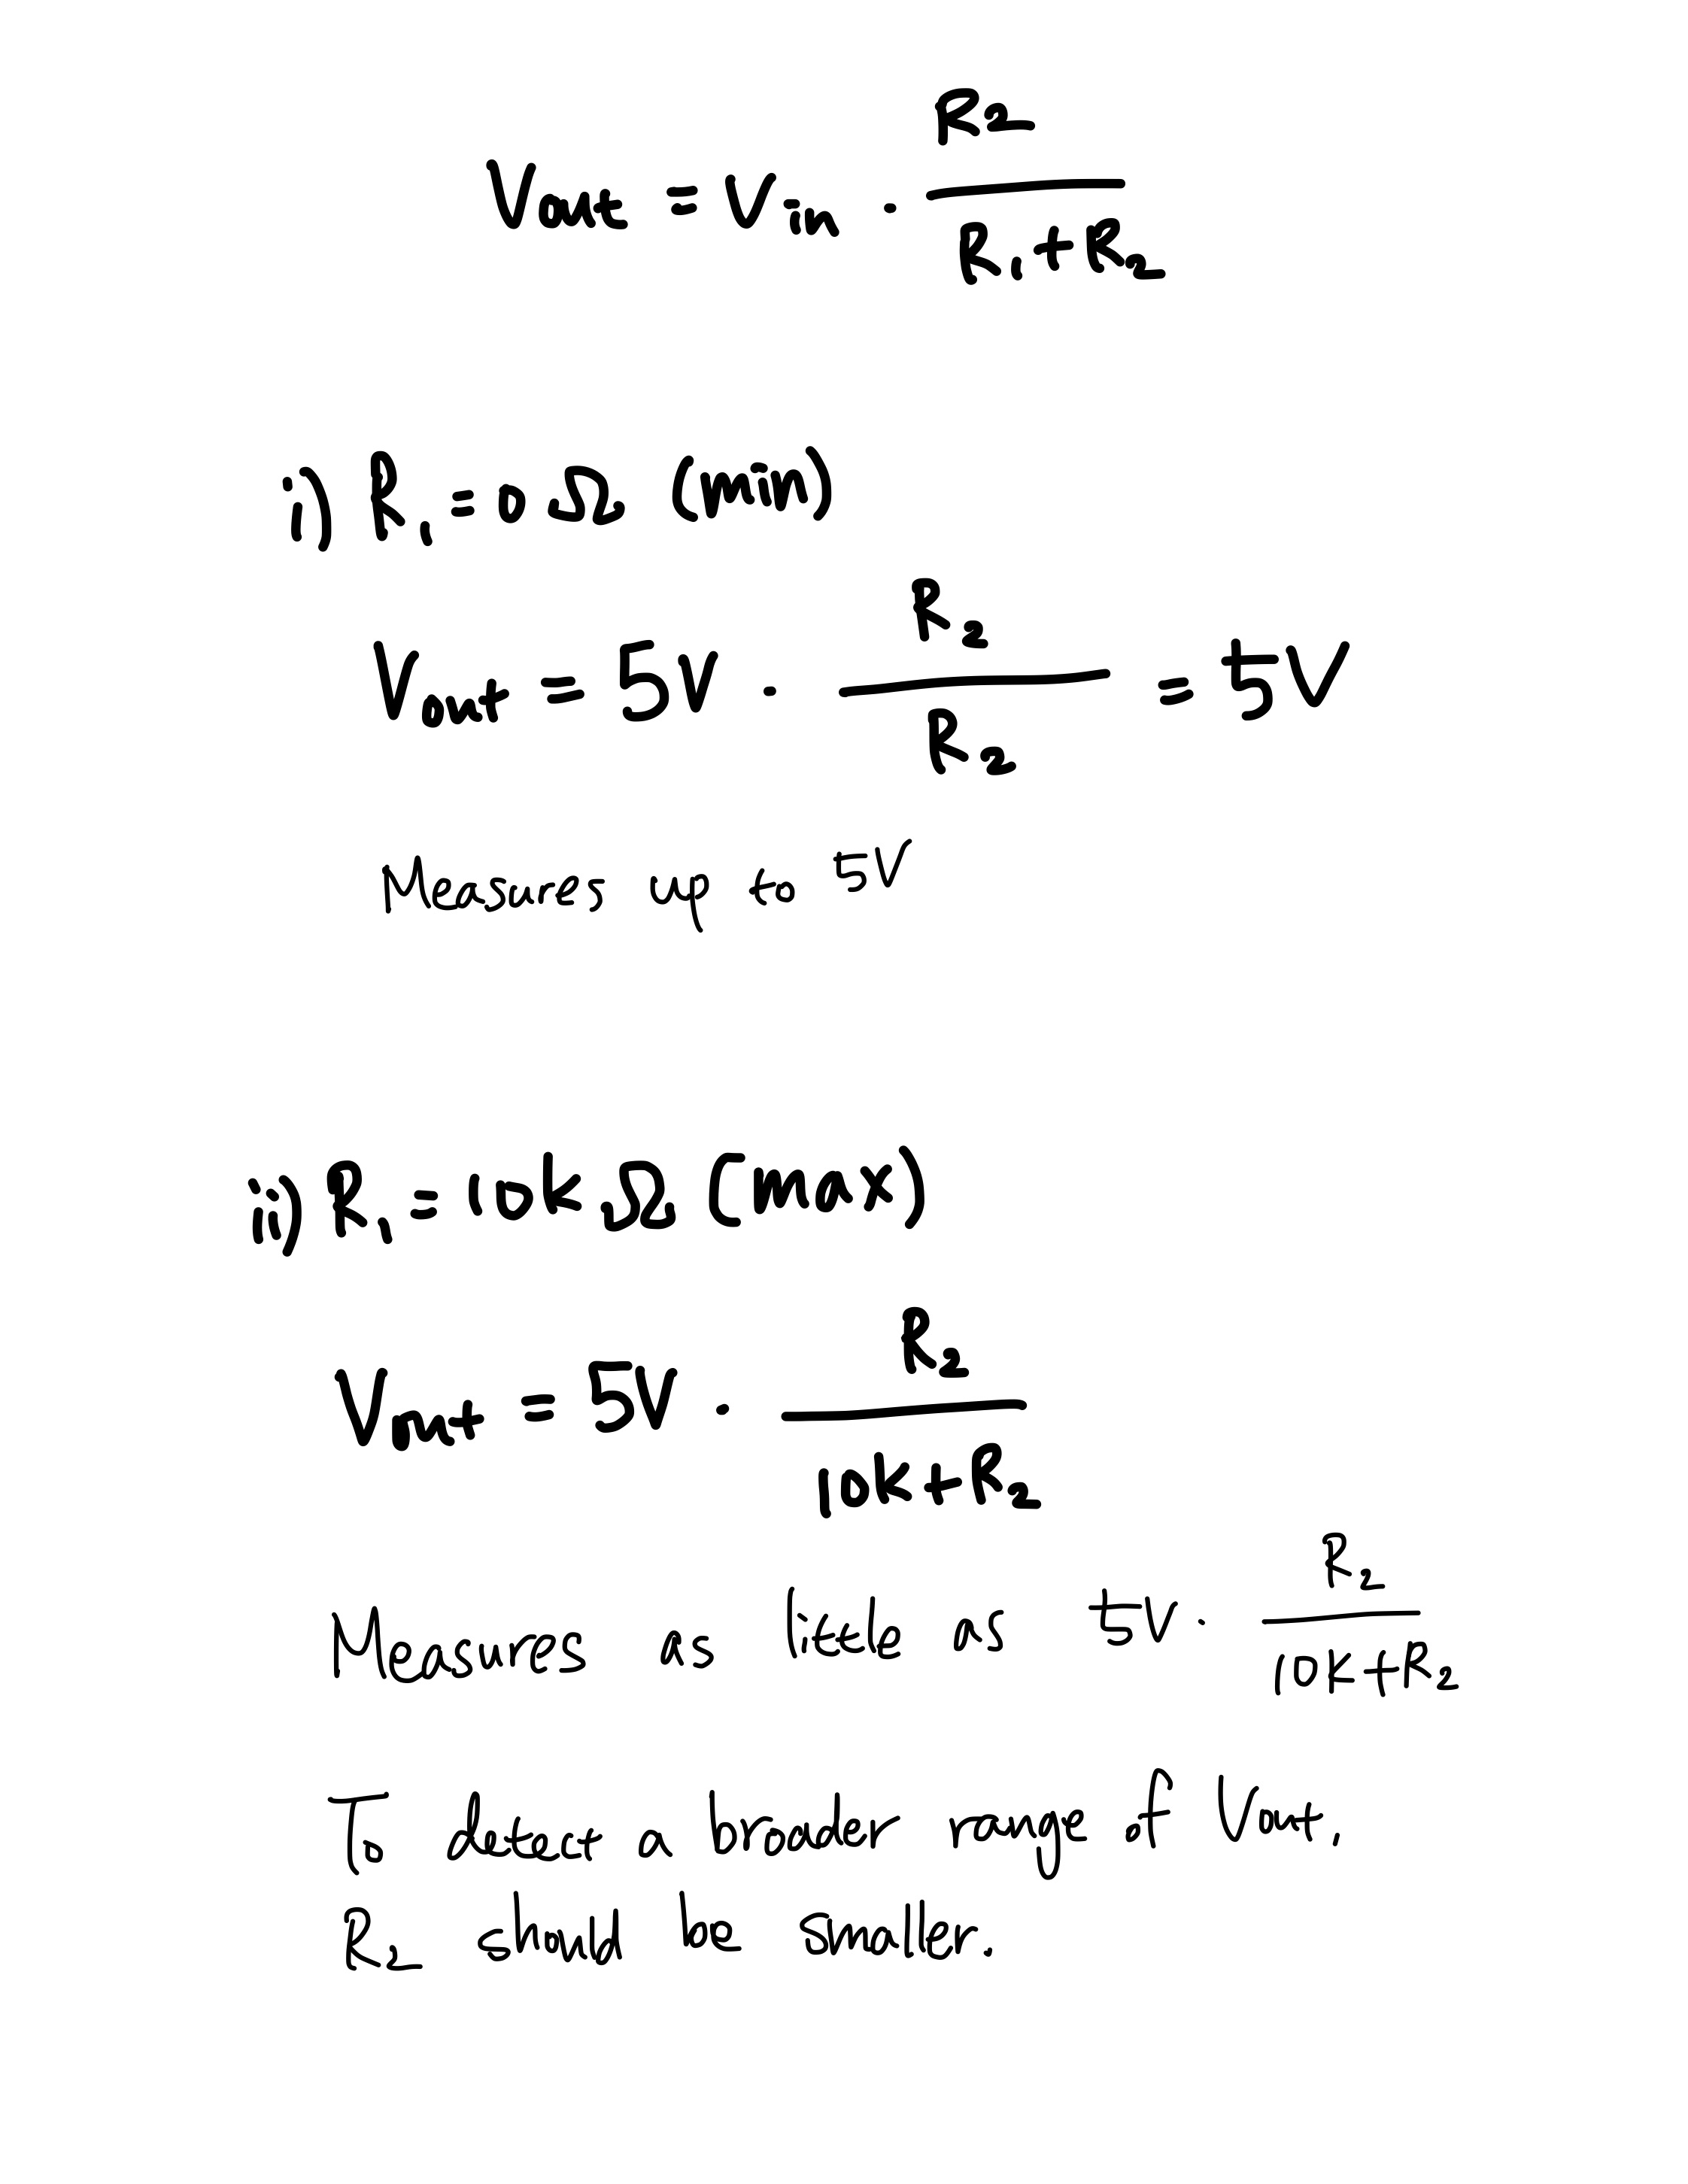 Vout = Vin · R2 / (R1+R2)
i) R1 = 0 Ω (min)
Vout = 5V · R2 / R2 = 5V
Measures up to 5V
ii) R1 = 10k Ω (max)
Vout = 5V · R2 / (10k+R2)
Measures as little as 5V · R2 / (10k+R2)
To detect a broader range of Vout,
R2 should be smaller.